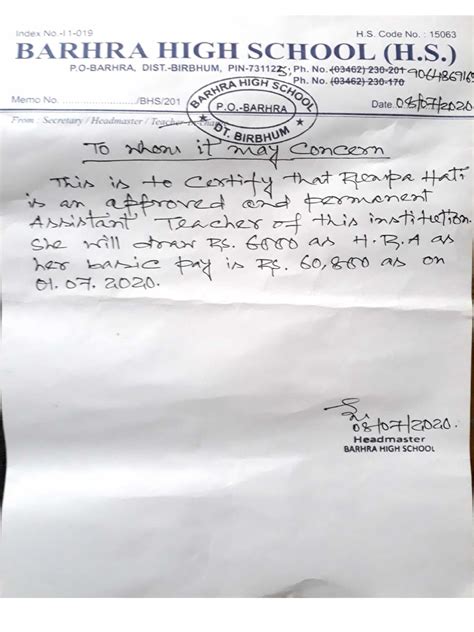 Index No.-I1-019 H.S. Code No. : 15063
BARHRA HIGH SCHOOL (H.S.)
P.O-BARHRA, DIST.-BIRBHUM, PIN-731122 Ph. No. (03462) 230-201
Ph. No. (03462) 230-170
Memo No. ..................../BHS/201 Date. 08/07/2020
BARHRA HIGH SCHOOL
P.O.-BARHRA
DT. BIRBHUM
From : Secretary / Headmaster / Teacher-In-charge
To whom it may Concern
This is to Certify that Hati
is an approved and permanent
Assistant Teacher of this institution.
She will draw Rs. 6000 as H.R.A as
her basic pay is Rs. 60,800 as on
01.07.2020.
08/07/2020.
Headmaster
BARHRA HIGH SCHOOL